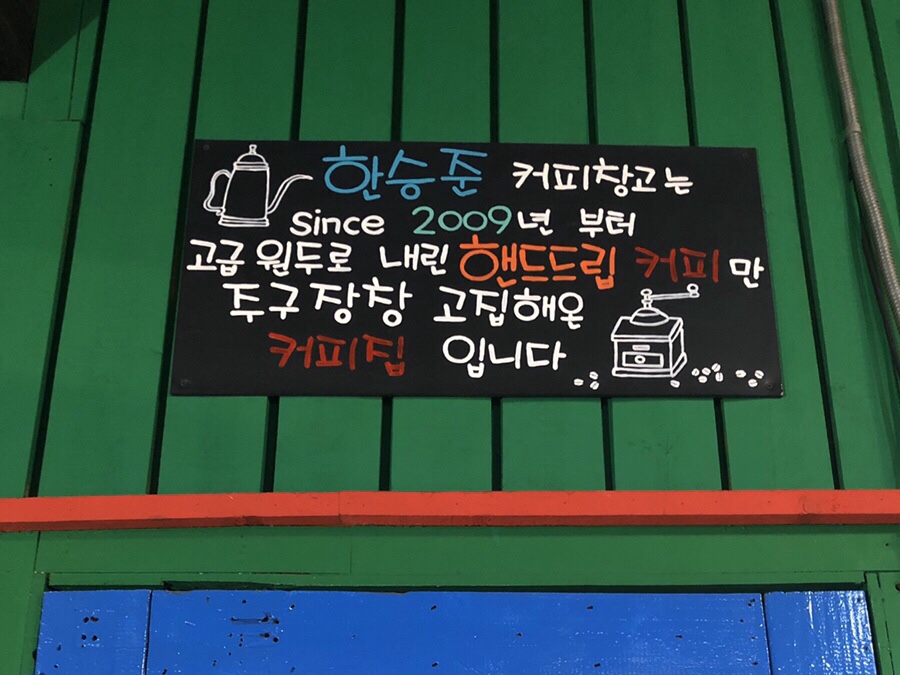 한승준 커피창고는
since 2009년 부터
고급 원두로 내린 핸드드립 커피만
주구장창 고집해온
커피집 입니다